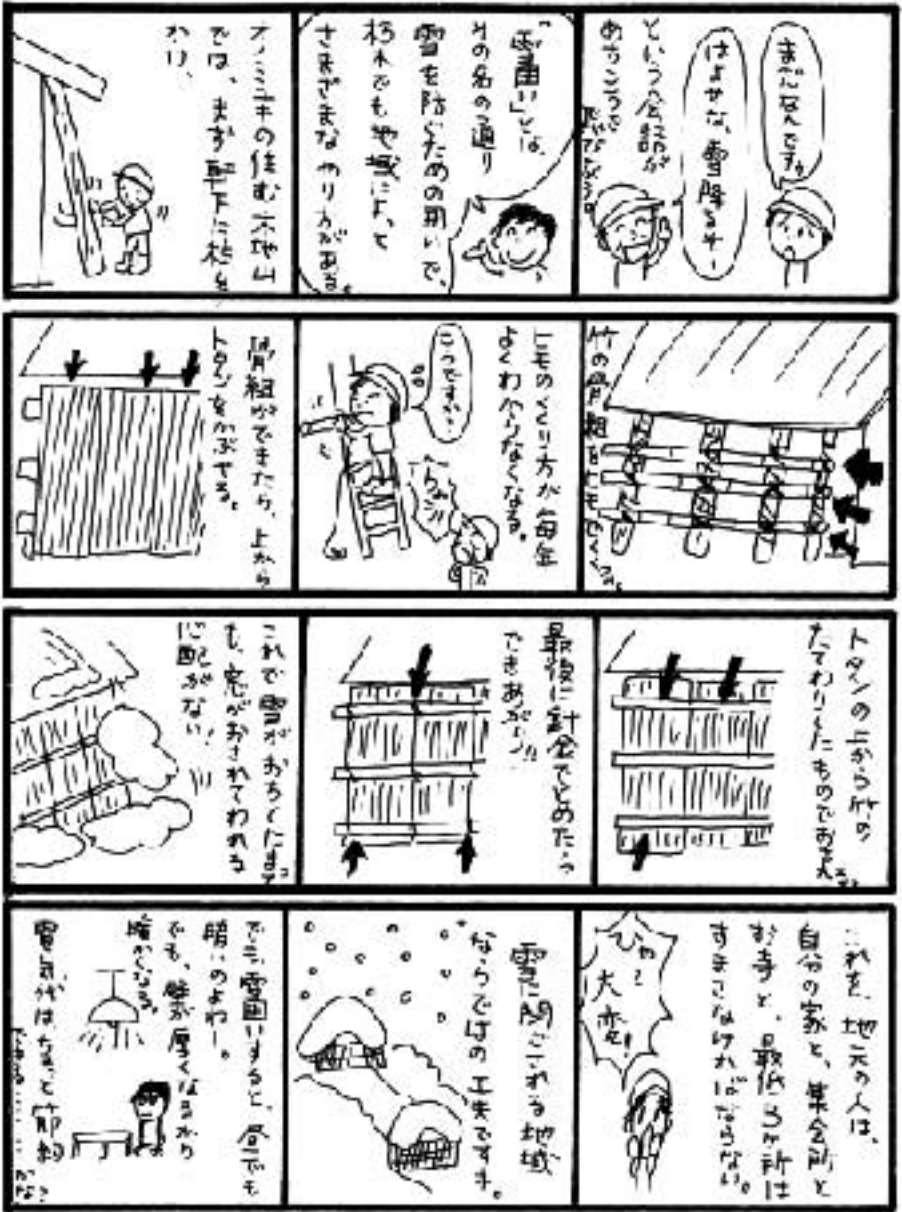 まだなんです。
はよせな、雪降るぞー
という会話が
あちこちで
「雪囲い」とは、
その名の通り
雪を防ぐための囲いで、
朽木でも地域によって
さまざまなやり方がある。
オノミユキの住む木地山
では、まず軒下に杭を
竹の骨組をヒモでくくる。
ヒモのくくり方が毎年
よくわからなくなる。
こうですか?
骨組ができたら、上から
トタンをかぶせる。
トタンの上から竹の
たてわりしたものでおさえ
最後に針金でとめたらっ
できあがり!!
これで雪がおちてたまっ
ても、窓がおされてわれる
心配がない!
これを、地元の人は、
自分の家と、集会所と
お寺と、最低3ヶ所は
すまさなければならない。
ひゃ〜
大変!
雪に閉ざされる地域
ならではの工夫ですネ。
でも、雪囲いすると、昼でも
暗いのよねー。
でも、壁が厚くなるから
暖かくなる。
電気代は、ちょっと節約